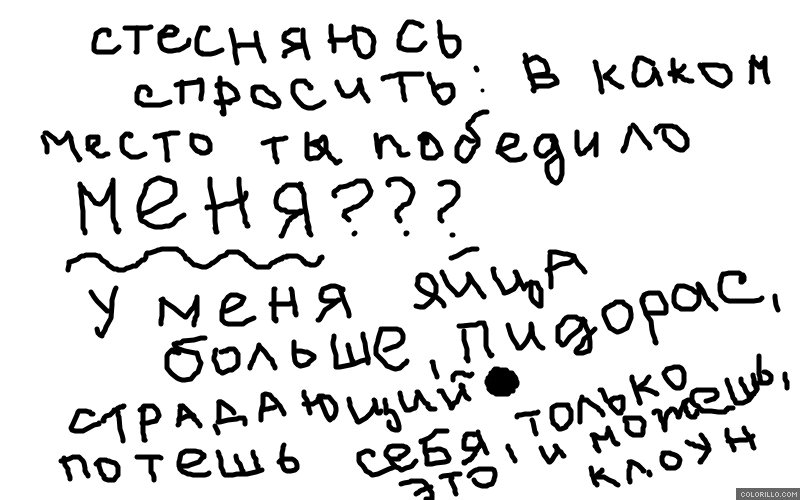 стесняюсь
спросить: в каком
место ты победило
меня???
у меня яйца
больше, пидорас,
страдающий
потешь себя, только
это и можешь,
клоун
COLORILLO.COM